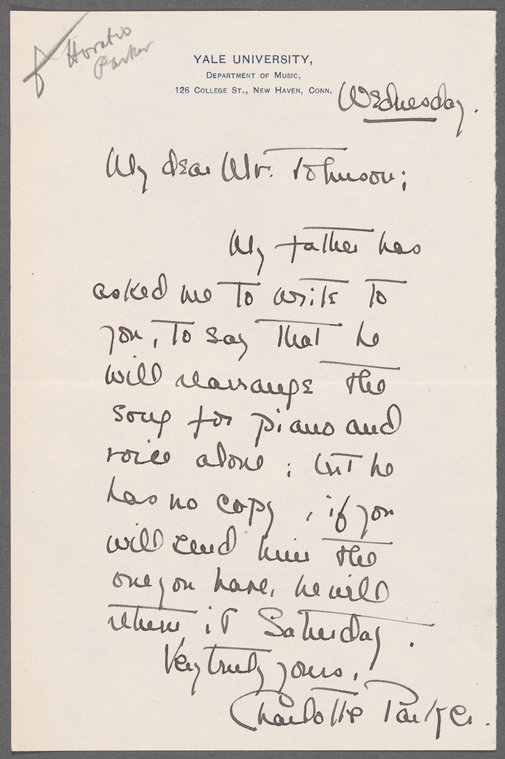 Horatio
Parker
YALE UNIVERSITY,
DEPARTMENT OF MUSIC,
126 COLLEGE ST., NEW HAVEN, CONN.
Wednesday.
My dear Mr. Johnson;
My father has
asked me to write to
you, to say that he
will rearrange the
song for piano and
voice alone; but he
has no copy, if you
will send him the
one you have, he will
return it Saturday.
Very truly yours,
Charlotte Parker.